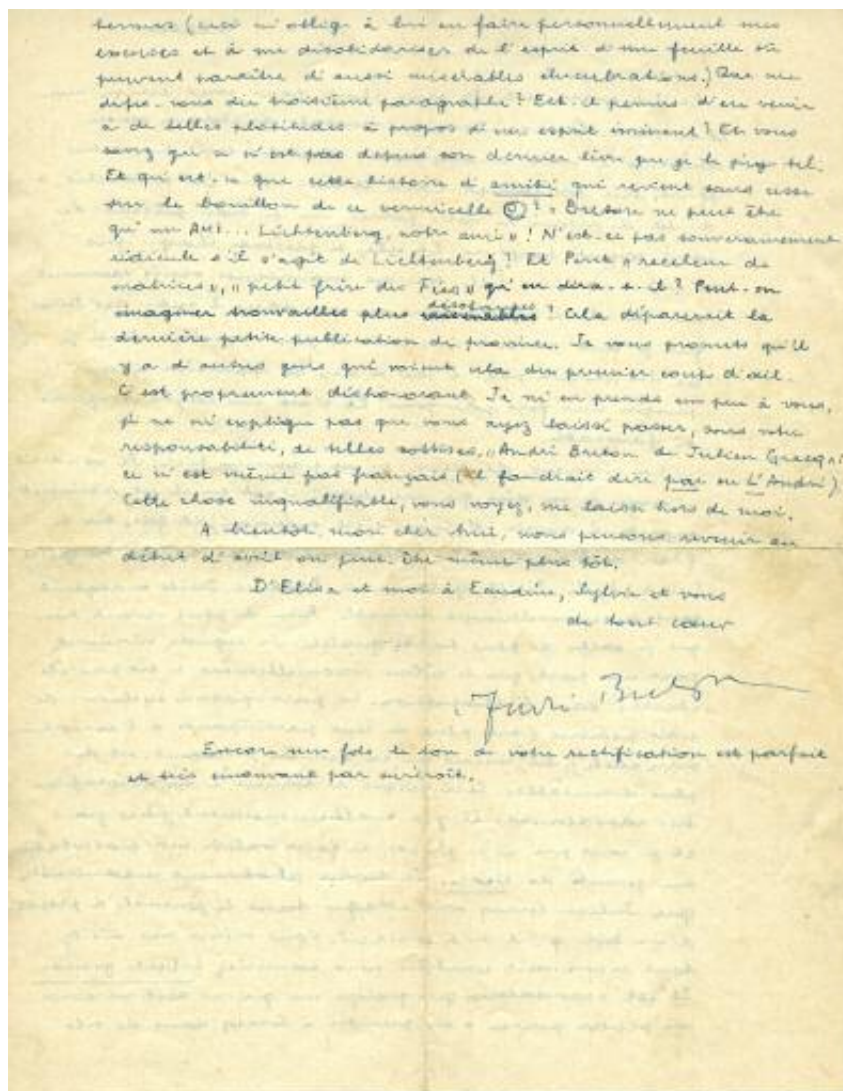 termes (ceci m'oblige à lui en faire personnellement mes
excuses et à me désolidariser de l'esprit d'une feuille où
peuvent paraître d'aussi misérables élucubrations.) Que me
dites-vous du troisième paragraphe? Est-il permis d'en venir
à de telles platitudes à propos d'un esprit éminent? Et vous
savez que ce n'est pas depuis son dernier livre que je le juge tel.
Et qu'est-ce que cette histoire d'amitié qui revient sans cesse
sur le bouillon de ce vermicelle ? « Breton ne peut être
qu'un Ami... Lichtenberg, notre ami » ! N'est-ce pas souverainement
ridicule s'il s'agit de Lichtenberg! Et Péret « receleur de
matrices », « petit frère des Fées » qu'en dira-t-il? Peut-on
imaginer trouvailles plus désolantes ! Cela déparerait la
dernière petite publication de province. Je vous promets qu'il
y a d'autres que qui voient cela du premier coup d'œil.
C'est proprement déshonorant. Je m'en prends un peu à vous,
je ne m'explique pas que vous ayez laissé passer, sous votre
responsabilité, de telles sottises. « André Breton de Julien Gracq »
ce n'est même pas français (il faudrait dire par ou L'André).
Cette chose inqualifiable, vous voyez, me laisse hors de moi.
A bientôt, mon cher Ami, nous pensons revenir au
début d'avril ou peut-être même plus tôt.
D'Elisa et moi à , Sylvie et vous
de tout cœur
André Breton
Encore une fois le ton de votre rectification est parfait
et très émouvant par surcroît.